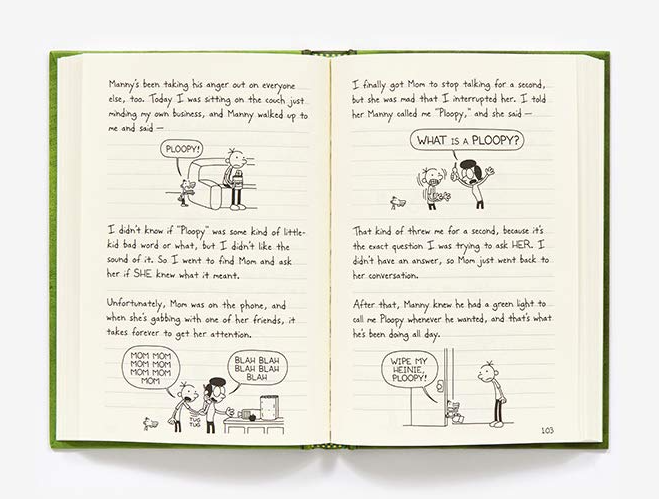 Manny's been taking his anger out on everyone
else, too. Today I was sitting on the couch just
minding my own business, and Manny walked up to
me and said —
PLOOPY!
I didn't know if "Ploopy" was some kind of little-
kid bad word or what, but I didn't like the
sound of it. So I went to find Mom and ask
her if SHE knew what it meant.
Unfortunately, Mom was on the phone, and
when she's gabbing with one of her friends, it
takes forever to get her attention.
MOM MOM
MOM MOM
MOM MOM
MOM
BLAH BLAH
BLAH BLAH
BLAH
TUG
TUG
I finally got Mom to stop talking for a second,
but she was mad that I interrupted her. I told
her Manny called me "Ploopy," and she said —
WHAT IS A PLOOPY?
That kind of threw me for a second, because it's
the exact question I was trying to ask HER. I
didn't have an answer, so Mom just went back to
her conversation.
After that, Manny knew he had a green light to
call me Ploopy whenever he wanted, and that's what
he's been doing all day.
WIPE MY
HEINIE,
PLOOPY!
103